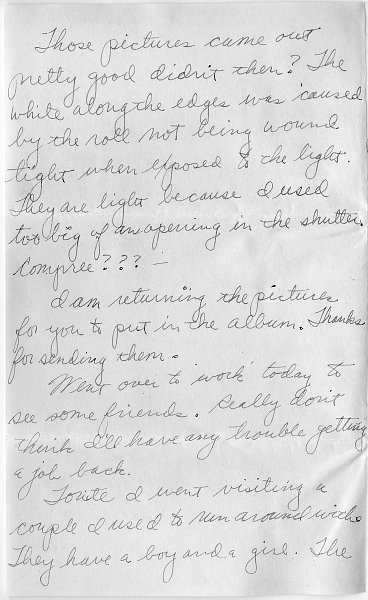 Those pictures came out
pretty good didn't then? The
white along the edges was caused
by the roll not being wound
tight when exposed to the light.
They are light because I used
too big of an opening in the shutter.
Compree??? —
I am returning the pictures
for you to put in the album. Thanks
for sending them.
Went over to 'work' today to
see some friends. Really don't
think I'll have any trouble getting
a job back.
Tonite I went visiting a
couple I used to run around with.
They have a boy and a girl. The